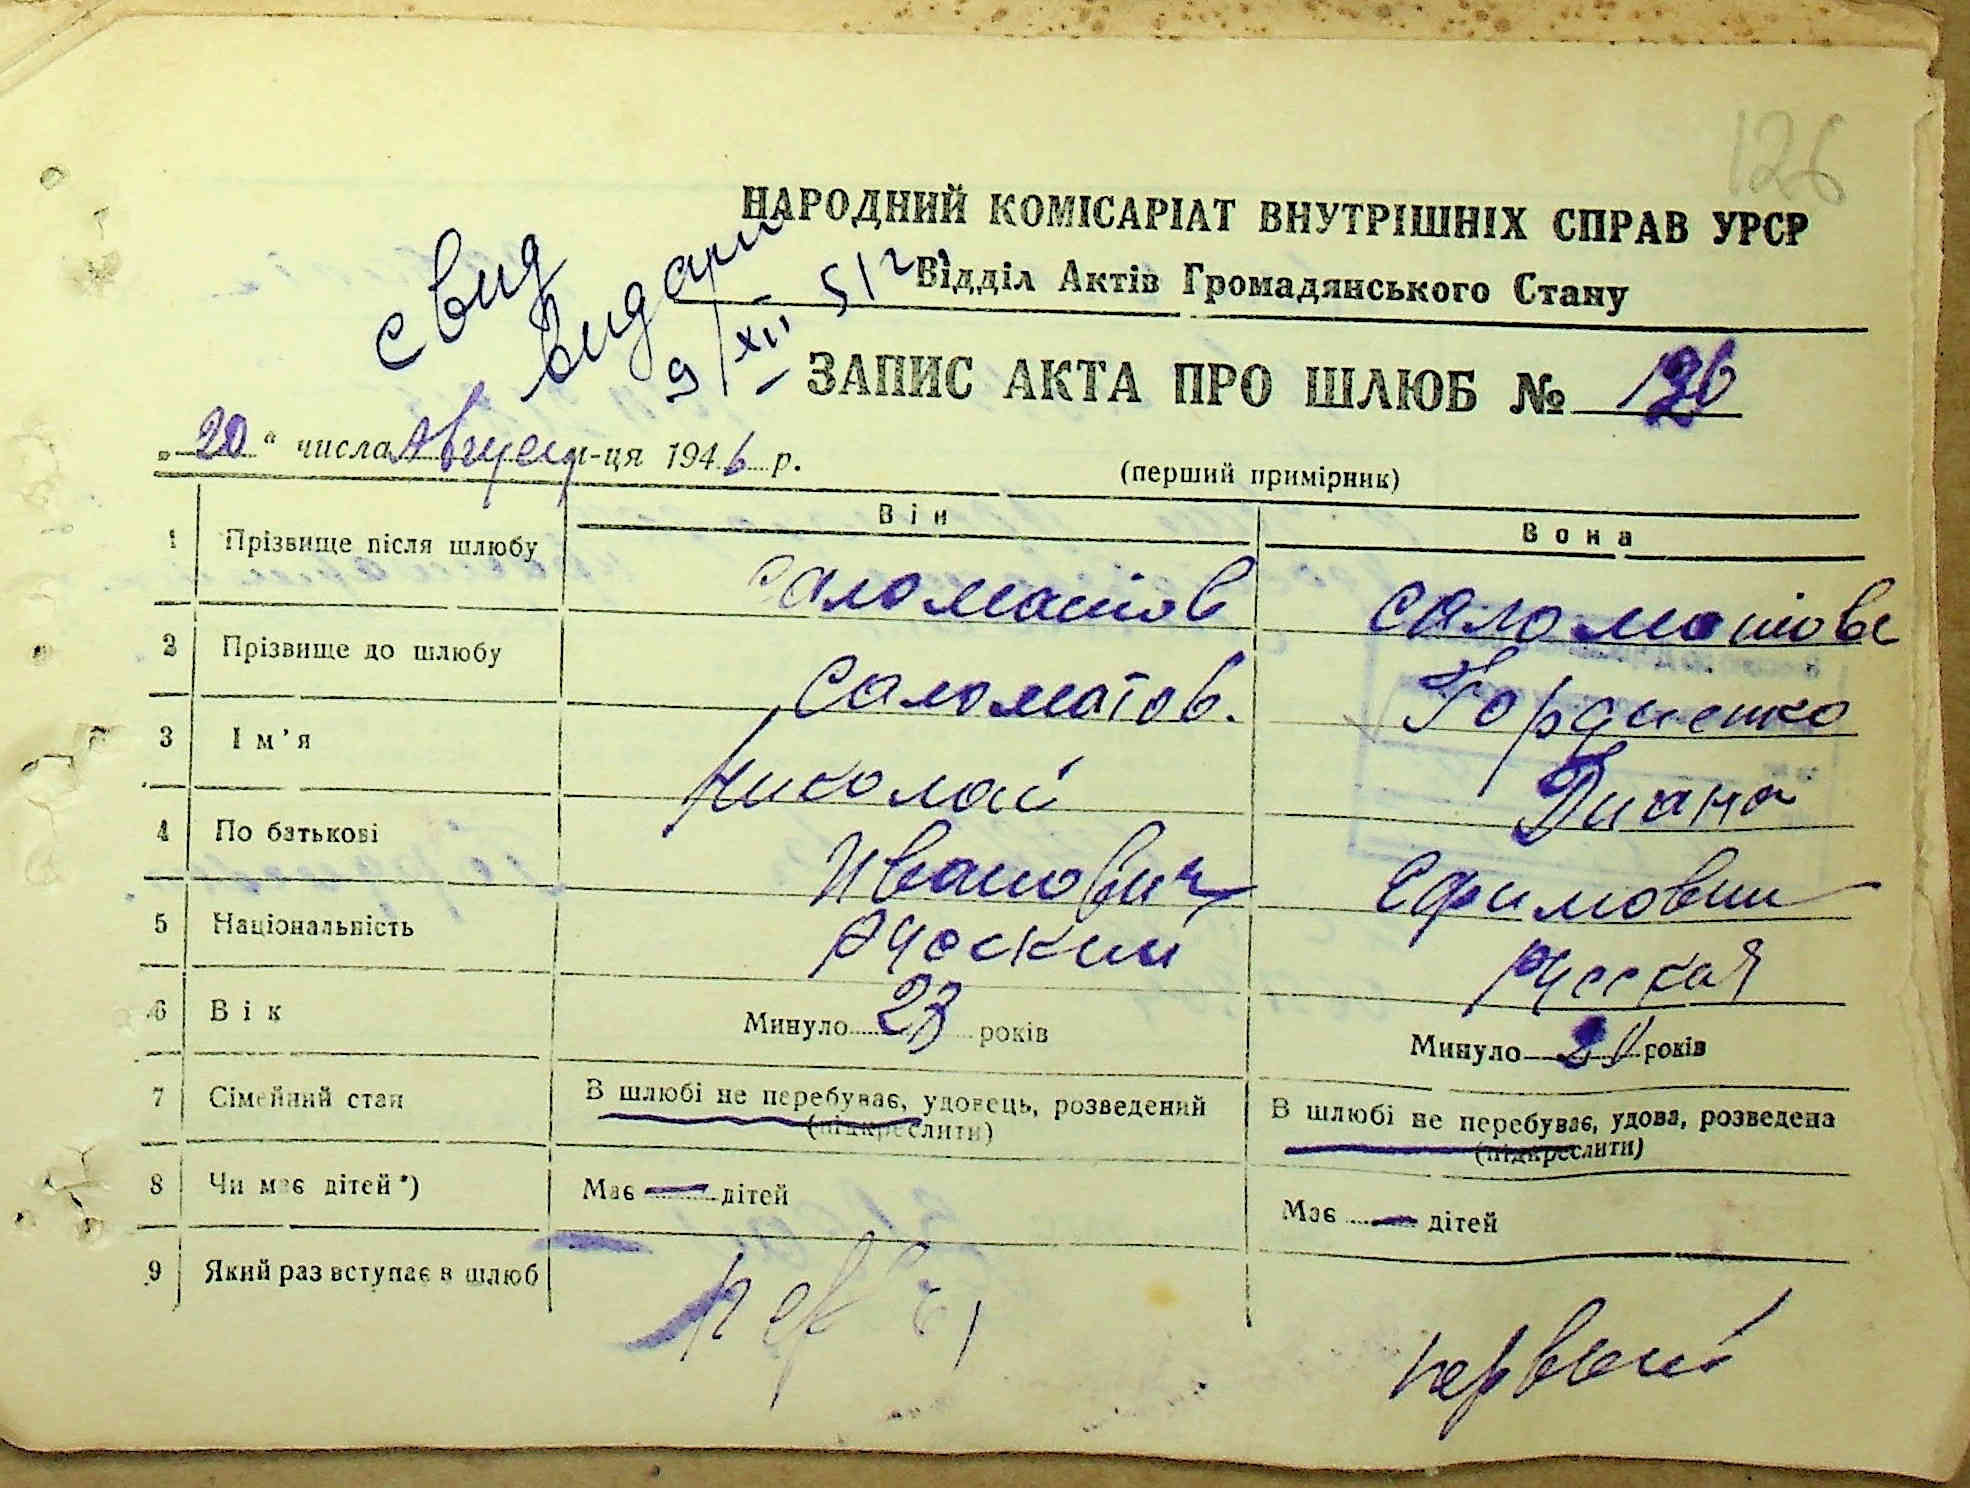 126
НАРОДНИЙ КОМІСАРІАТ ВНУТРІШНІХ СПРАВ УРСР
Відділ Актів Громадянського Стану
свид
видали
9/XII 51 г
ЗАПИС АКТА ПРО ШЛЮБ № 126
„20“ числа Август м-ця 1946 р.
(перший примірник)
Він Вона
1 Прізвище після шлюбу Саломатов Саломатова
2 Прізвище до шлюбу Саломатов. Гордиенко
3 Ім’я Николай Диана
4 По батькові Иванович Ефимовна
5 Національність Русский Русская
6 Вік Минуло 23 років Минуло років
7 Сімейний стан В шлюбі не перебуває, удовець, розведений В шлюбі не перебуває, удова, розведена
(підкреслити) (підкреслити)
8 Чи має дітей*) Має — дітей Має — дітей
9 Який раз вступає в шлюб первый